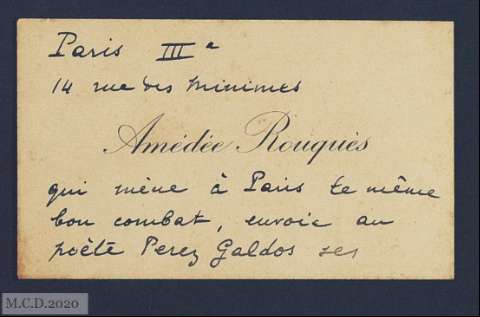 Paris IIIe
14 rue des Minimes
Amédée Rouquès
qui mène à Paris le même
bon combat, envoie au
poète Perez Galdos ses
M.C.D.2020